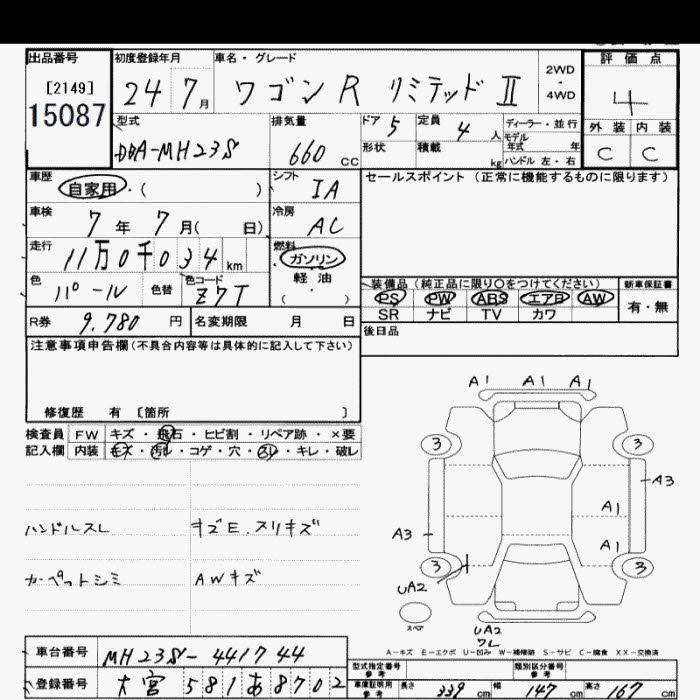 出品番号 初度登録年月 車名・グレード 評価点
[2149]
15087
24 7月 ワゴンR リミテッドⅡ 2WD・4WD 4
型式 DBA-MH23S 排気量 660 cc ドア 5 定員 4 人 ディーラー・並行
形状 積載 kg モデル年式 年 ハンドル 左・右
外装 内装
C C
車歴 自家用・( ) シフト IA セールスポイント(正常に機能するものに限ります)
車検 7年 7月( 日) 冷房 AC
走行 11万0千034km 燃料 ガソリン 軽油 ( )
色 パール 色替 色コード Z7T
装備品(純正品に限り○をつけてください) 新車保証書
PS PW ABS エアB AW 有・無
SR ナビ TV カワ
R券 9.780 円 名変期限 月 日 後日品
注意事項申告欄(不具合内容等は具体的に記入して下さい)
修復歴 有 〔箇所 〕
検査員 FW キズ・飛石・ヒビ割・リペア跡・×要
記入欄 内装 キズ・汚れ・コゲ・穴・スレ・キレ・破レ
ハンドルスレ キズE.スリキズ
カーペットシミ AWキズ
A1 A1 A1
3 3
A3
A1
A3 A1
3 3
UA2
スペア
UA2
ワレ
A-キズ E-エクボ U-凹み W-補修跡 S-サビ C-腐食 XX-交換済
車台番号 MH23S-441744
登録番号 大宮 581あ8702
型式指定番号 参考 類別区分番号 参考
車庫証明用 参考 長さ 339 cm 幅 147 cm 高さ 167 cm